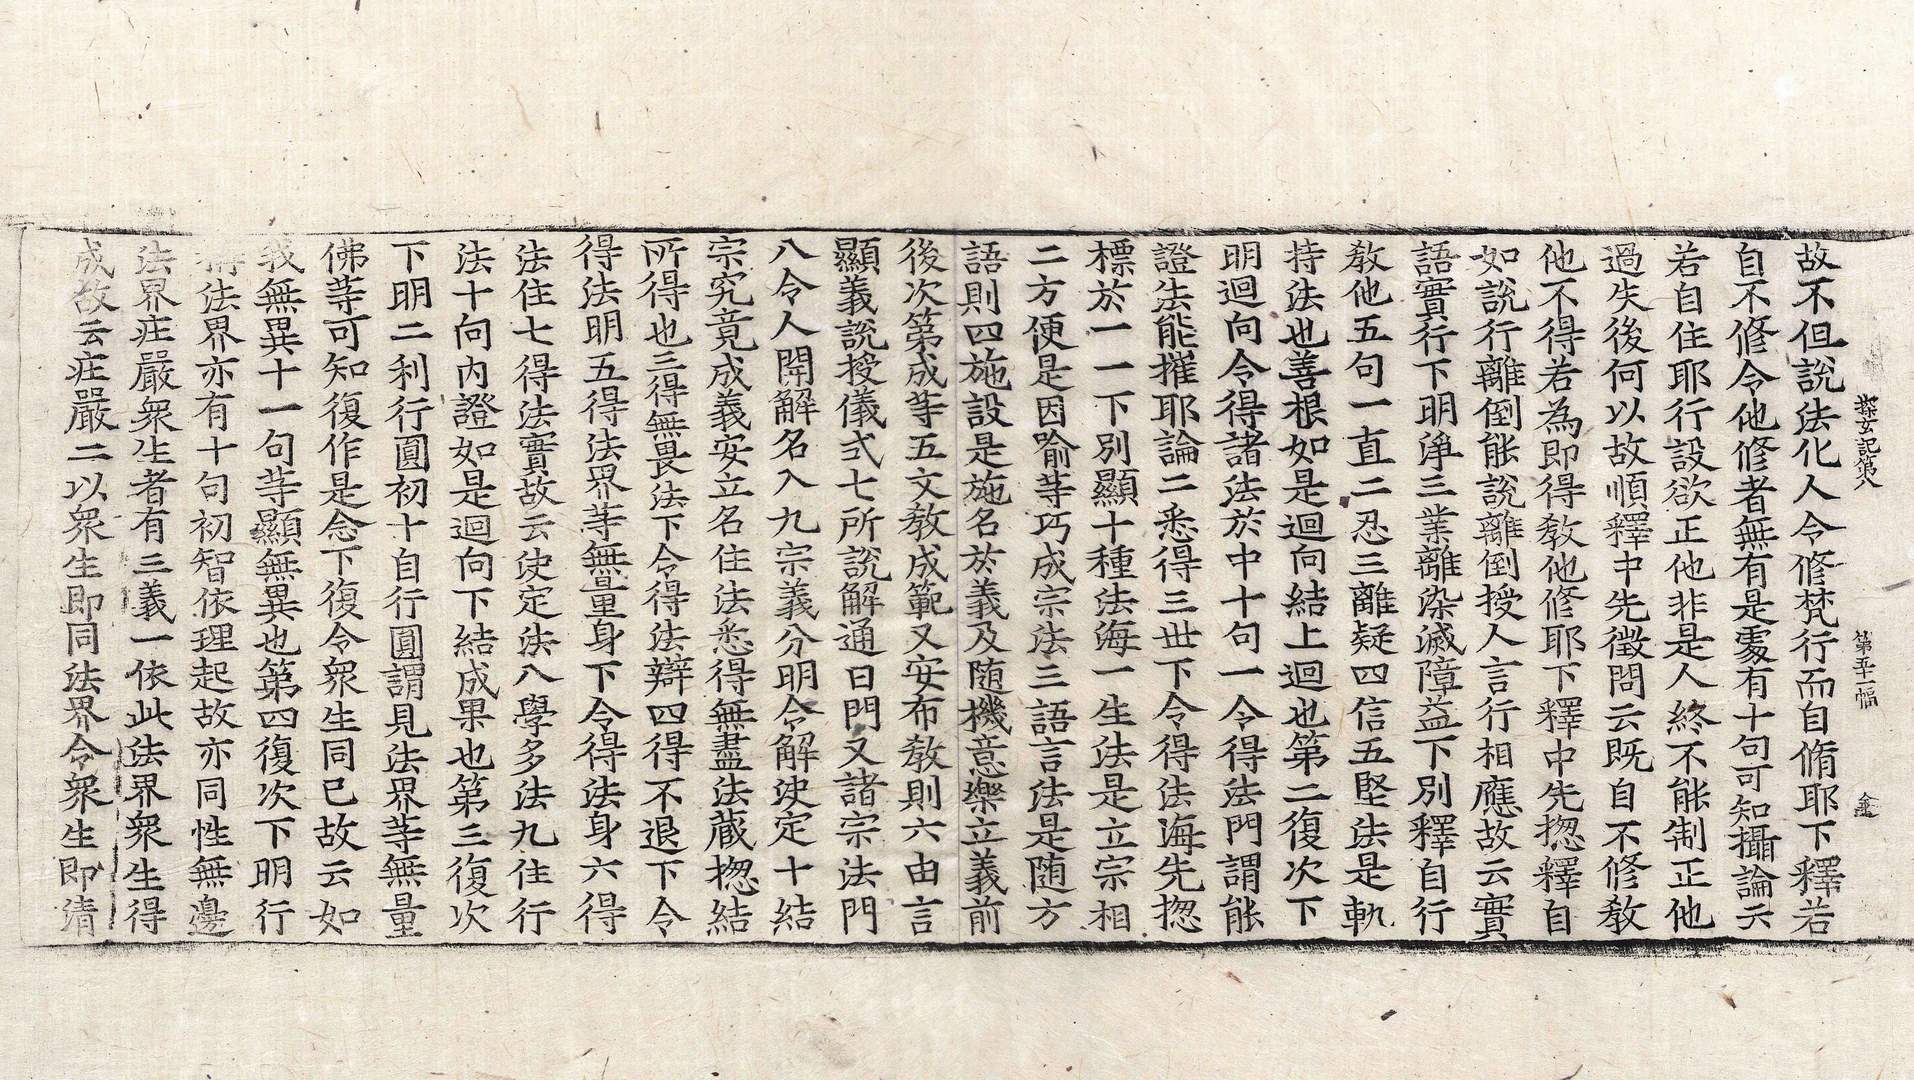 探玄記第八 第五十一幅 金
故不但說法化人令修梵行而自脩耶下釋若
自不修令他修者無有是處有十句可知攝論云
若自住耶行設欲正他非是人終不能制正他
過失後何以故順釋中先徵問云既自不修教
他不得若為即得教他修耶下釋中先揔釋自
如說行離倒能說離倒授人言行相應故云實
語實行下明淨三業離染滅障益下別釋自行
教他五句一直二忍三離疑四信五堅法是軌
持法也善根如是迴向結上迴也第二復次下
明迴向令得諸法於中十句一令得法門謂能
證法能摧耶論二悉得三世下令得法海先揔
標於一一下別顯十種法海一生法是立宗相
二方便是因喻等巧成宗法三語言法是随方
語則四施設是施名於義及随機意樂立義前
後次第成等五文教成範又安布教則六由言
顯義說授儀式七所說解通曰門又諸宗法門
八令人開解名入九宗義分明令解决定十結
宗究竟成義安立名住法悉得無盡法藏揔結
所得也三得無畏法下令得法辯四得不退下令
得法明五得法界等無量身下令得法身六得
法住七得法實故云使定法八學多法九住行
法十向內證如是迴向下結成果也第三復次
下明二利行圓初十自行圓謂見法界等無量
佛等可知復作是念下復令衆生同已故云如
我無異十一句等顯無異也第四復次下明行
稱法界亦有十句初智依理起故亦同性無邊
法界庄嚴衆生者有三義一依此法界衆生得
成故云庄嚴二以衆生即同法界令衆生即清